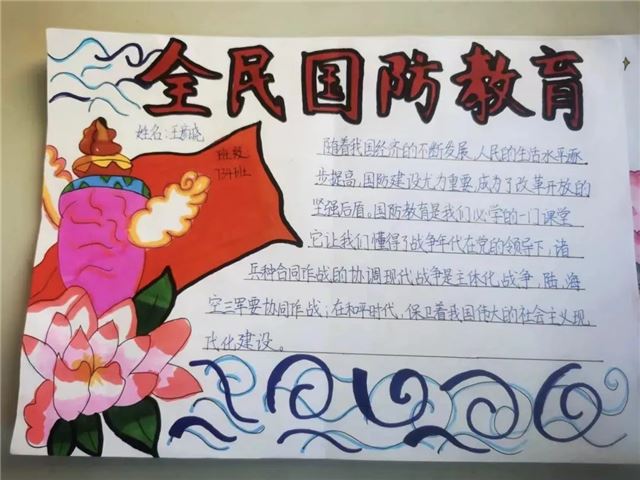 全民国防教育
姓名:王彦晓
班级
734班
随着我国经济的不断发展,人民的生活水平逐
步提高,国防建设尤为重要,成为了改革开放的
坚强后盾。国防教育是我们必学的一门课堂
它让我们懂得了战争年代在党的领导下,诸
兵种合同作战的协调现代战争是主体化战争,陆,海
空三军要协同作战;在和平时代,保卫着我国伟大的社会主义现
代化建设。